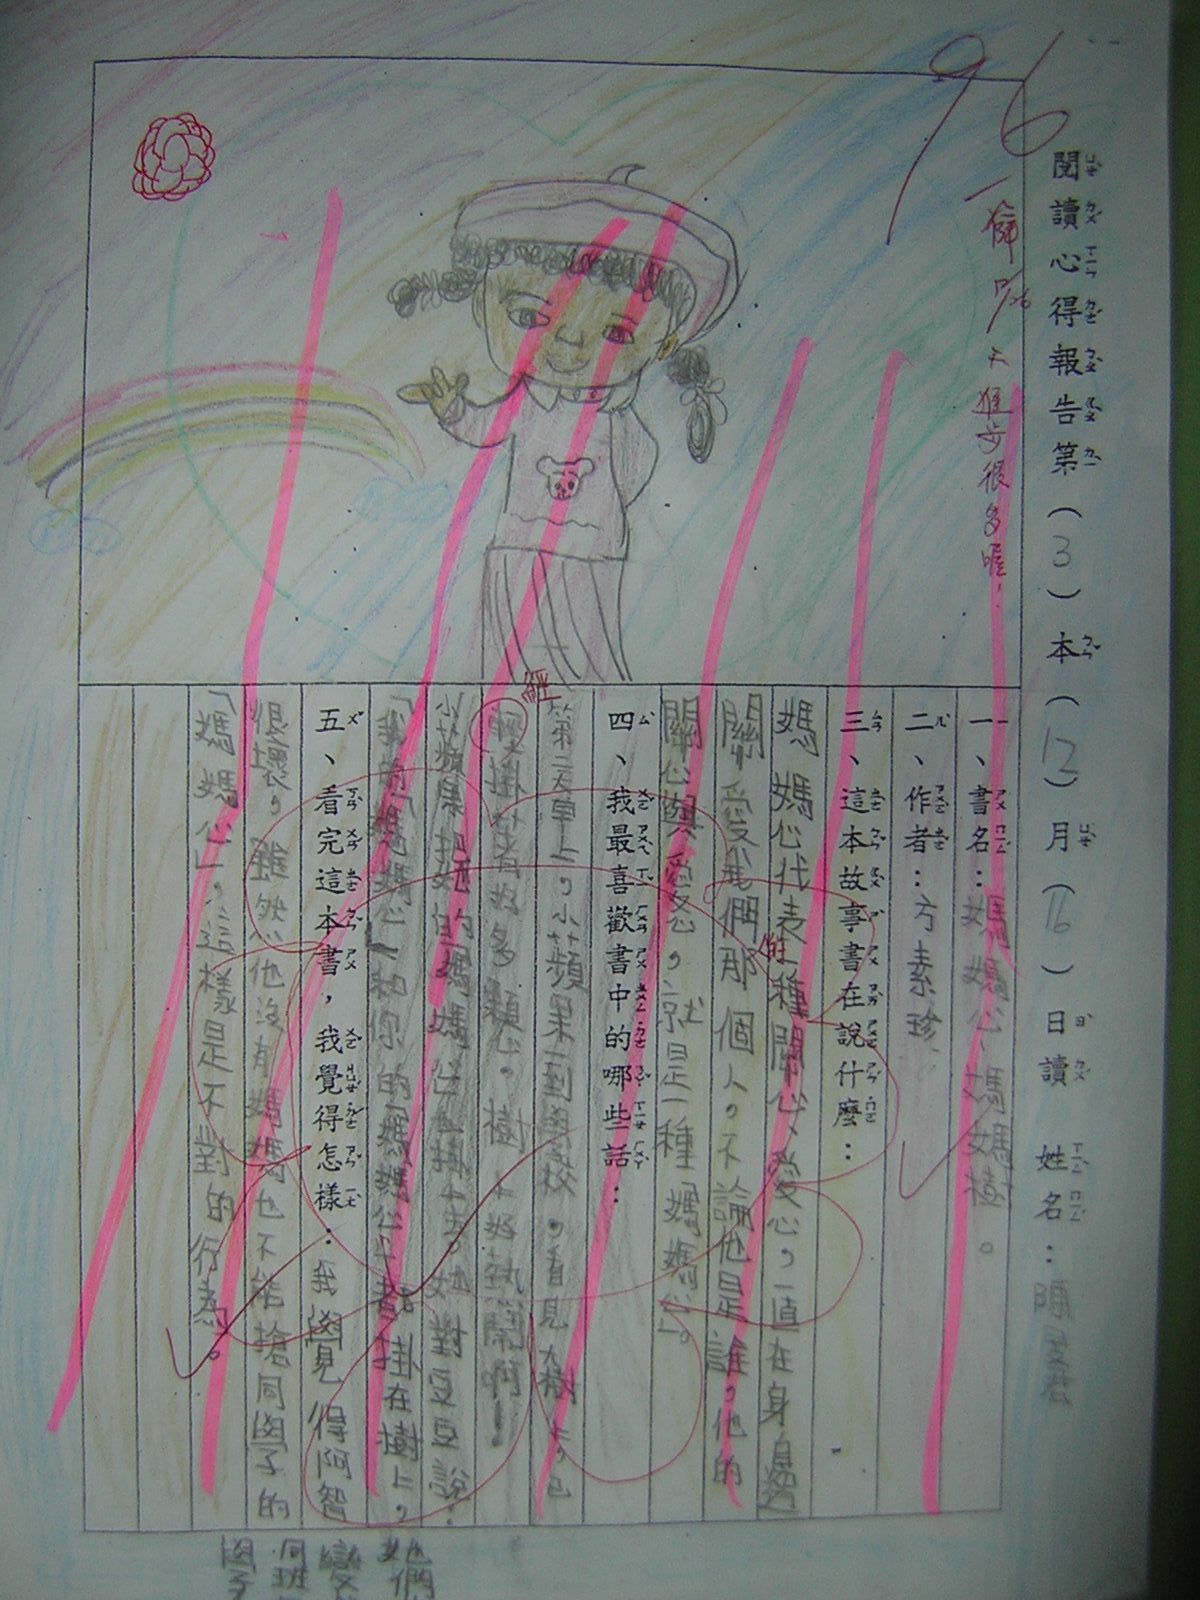 閱讀心得報告第(3)本(12)月(16)日讀 姓名:陳
96
進步很多喔!
一、書名:媽媽心、媽媽樹。
二、作者:方素珍
三、這本故事書在說什麼:
媽媽心代表一種關心、愛心,一直在身邊
關愛我們那個人。不論他是誰,他的
關心與愛心,就是一種「媽媽心」。
四、我最喜歡書中的哪些話:
第二天早上,小蘋果一到學校,看見大樹上,已
經掛著好多顆心。樹上好熱鬧啊!
經
小蘋果把她的「媽媽心」掛上去。她對豆豆說:
「我的「媽媽心」和你的「媽媽心」一起掛在樹上,
五、看完這本書,我覺得怎樣:我覺得阿智
很壞。雖然他沒有媽媽也不能搶同學的
「媽媽心」,這樣是不對的行為。
他們
變
同班